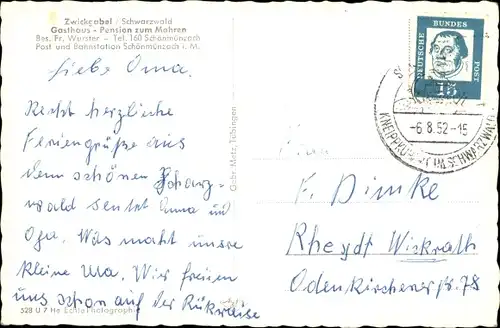 Zwickgabel / Schwarzwald
Gasthaus - Pension zum Mohren
Bes. Fr. Wurster - Tel. 160 Schönmünzach
Post und Bahnstation Schönmünzach i. M.
Liebe Oma.
Recht herzliche
Feriengrüße aus
dem schönen Schwarz-
wald sendet Anna und
Opa. Was macht unsre
kleine Ura. Wir freuen
uns schon auf der Rükreise
528 U 7 He Echte Photographie
Gebr. Metz, Tübingen
DEUTSCHE BUNDES POST
15
-6.8.62-15
KNEIPPKURORT IM SCHWARZWALD
F. Dimke
Rheydt Wickrath
Odenkirchenerstr. 78